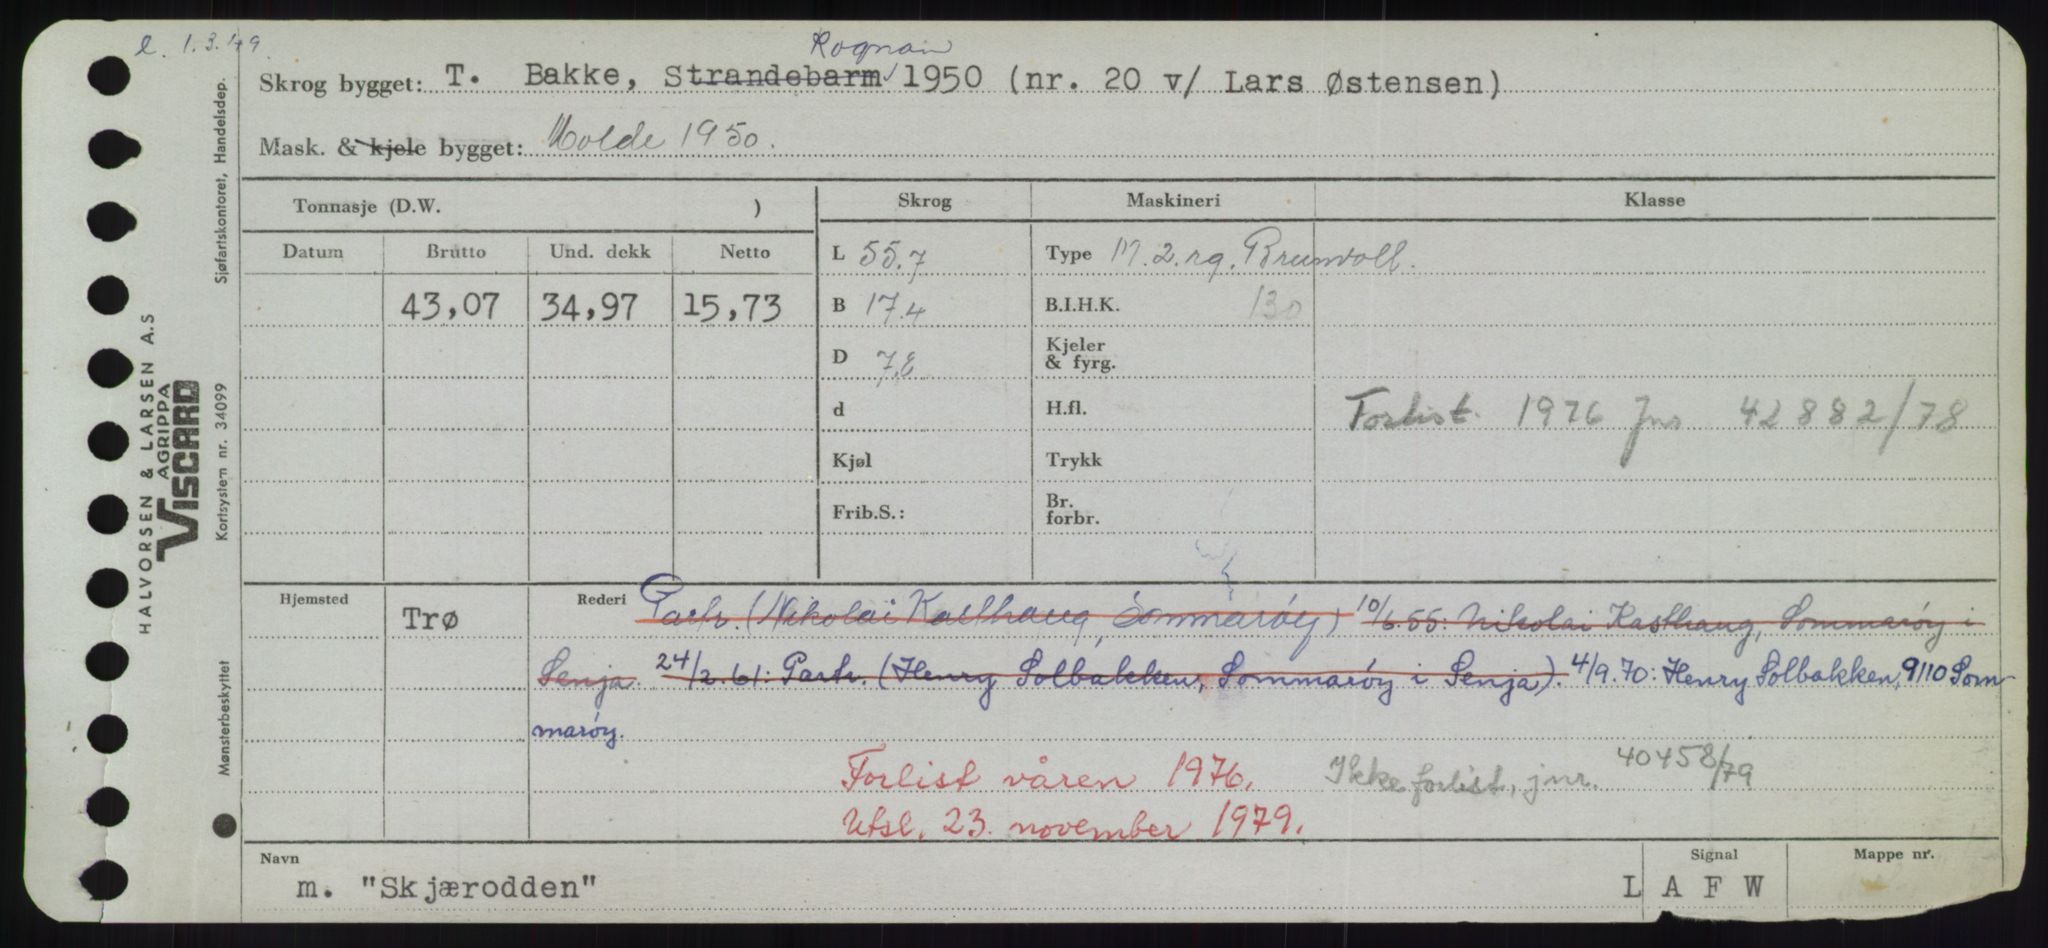 l. 1.3.79.
Rognan
Skrog bygget: T. Bakke, Strandebarm 1950 (nr. 20 v/ Lars Østensen)
Mask. & kjele bygget: Molde 1950.
Tonnasje (D.W. )
Skrog Maskineri Klasse
Datum Brutto Und. dekk Netto
L 55.7 Type M. 2.rg. Brunvoll.
43,07 34,97 15,73
B 17.4 B.I.H.K. 130
D 7.8 Kjeler
& fyrg.
d H.fl. Forlist. 1976 Jnr 42882/78
Kjøl Trykk
Frib.S.: Br.
forbr.
Hjemsted Trø Rederi Partr. (Nikolai Kasthaug, Sommarøy) 10/6.55: Nikolai Kasthaug, Sommarøy i
Senja. 24/2.61: Partr. (Henry Solbakken, Sommarøy i Senja). 4/9.70: Henry Solbakken, 9110 Som
marøy.
Forlist våren 1976. Ikke forlist, jnr. 40458/79
Utsl. 23. november 1979.
Navn Signal Mappe nr.
m. "Skjærodden" L A F W
HALVORSEN & LARSEN A.S
AGRIPPA
VISCARD
Mønsterbeskyttet Kortsystem nr. 34099 Sjøfartskontoret, Handelsdep.